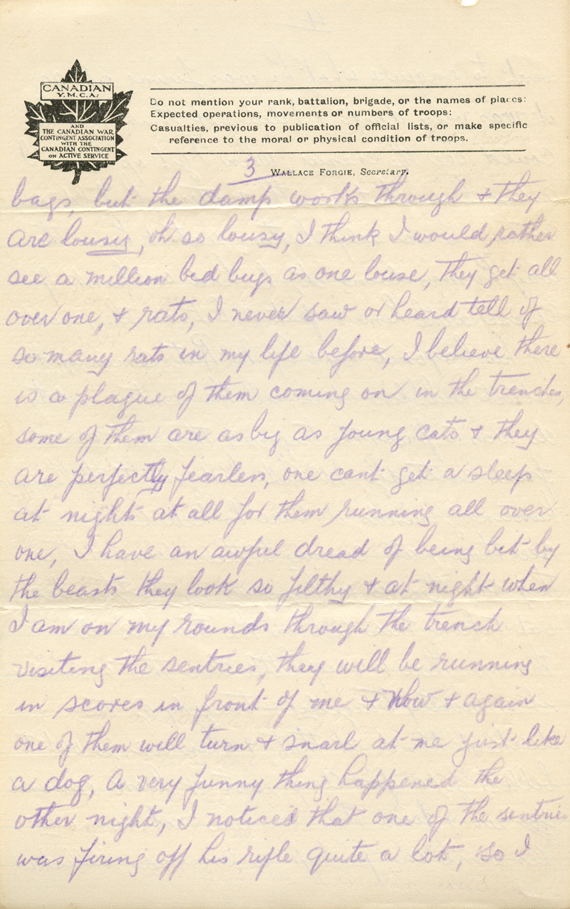 CANADIAN
Y.M.C.A.
AND
THE CANADIAN WAR
CONTINGENT ASSOCIATION
WITH THE
CANADIAN CONTINGENT
ON ACTIVE SERVICE
Do not mention your rank, battalion, brigade, or the names of places:
Expected operations, movements or numbers of troops:
Casualties, previous to publication of official lists, or make specific
reference to the moral or physical condition of troops.
3 WALLACE FORGIE, Secretary.
bags, but the damp works through + they
are lousy, oh so lousy, I think I would rather
see a million bed bugs as one louse, they get all
over one, + rats, I never saw or heard tell of
so many rats in my life before, I believe there
is a plague of them coming on in the trenches,
some of them are as big as young cats + they
are perfectly fearless, one cant get a sleep
at nights at all for them running all over
one, I have an awful dread of being bit by
the beasts they look so filthy + at night when
I am on my rounds through the trench
visiting the sentries, they will be running
in scores in front of me + now + again
one of them will turn + snarl at me just like
a dog, A very funny thing happened the
other night, I noticed that one of the sentries
was firing off his rifle quite a lot, so I